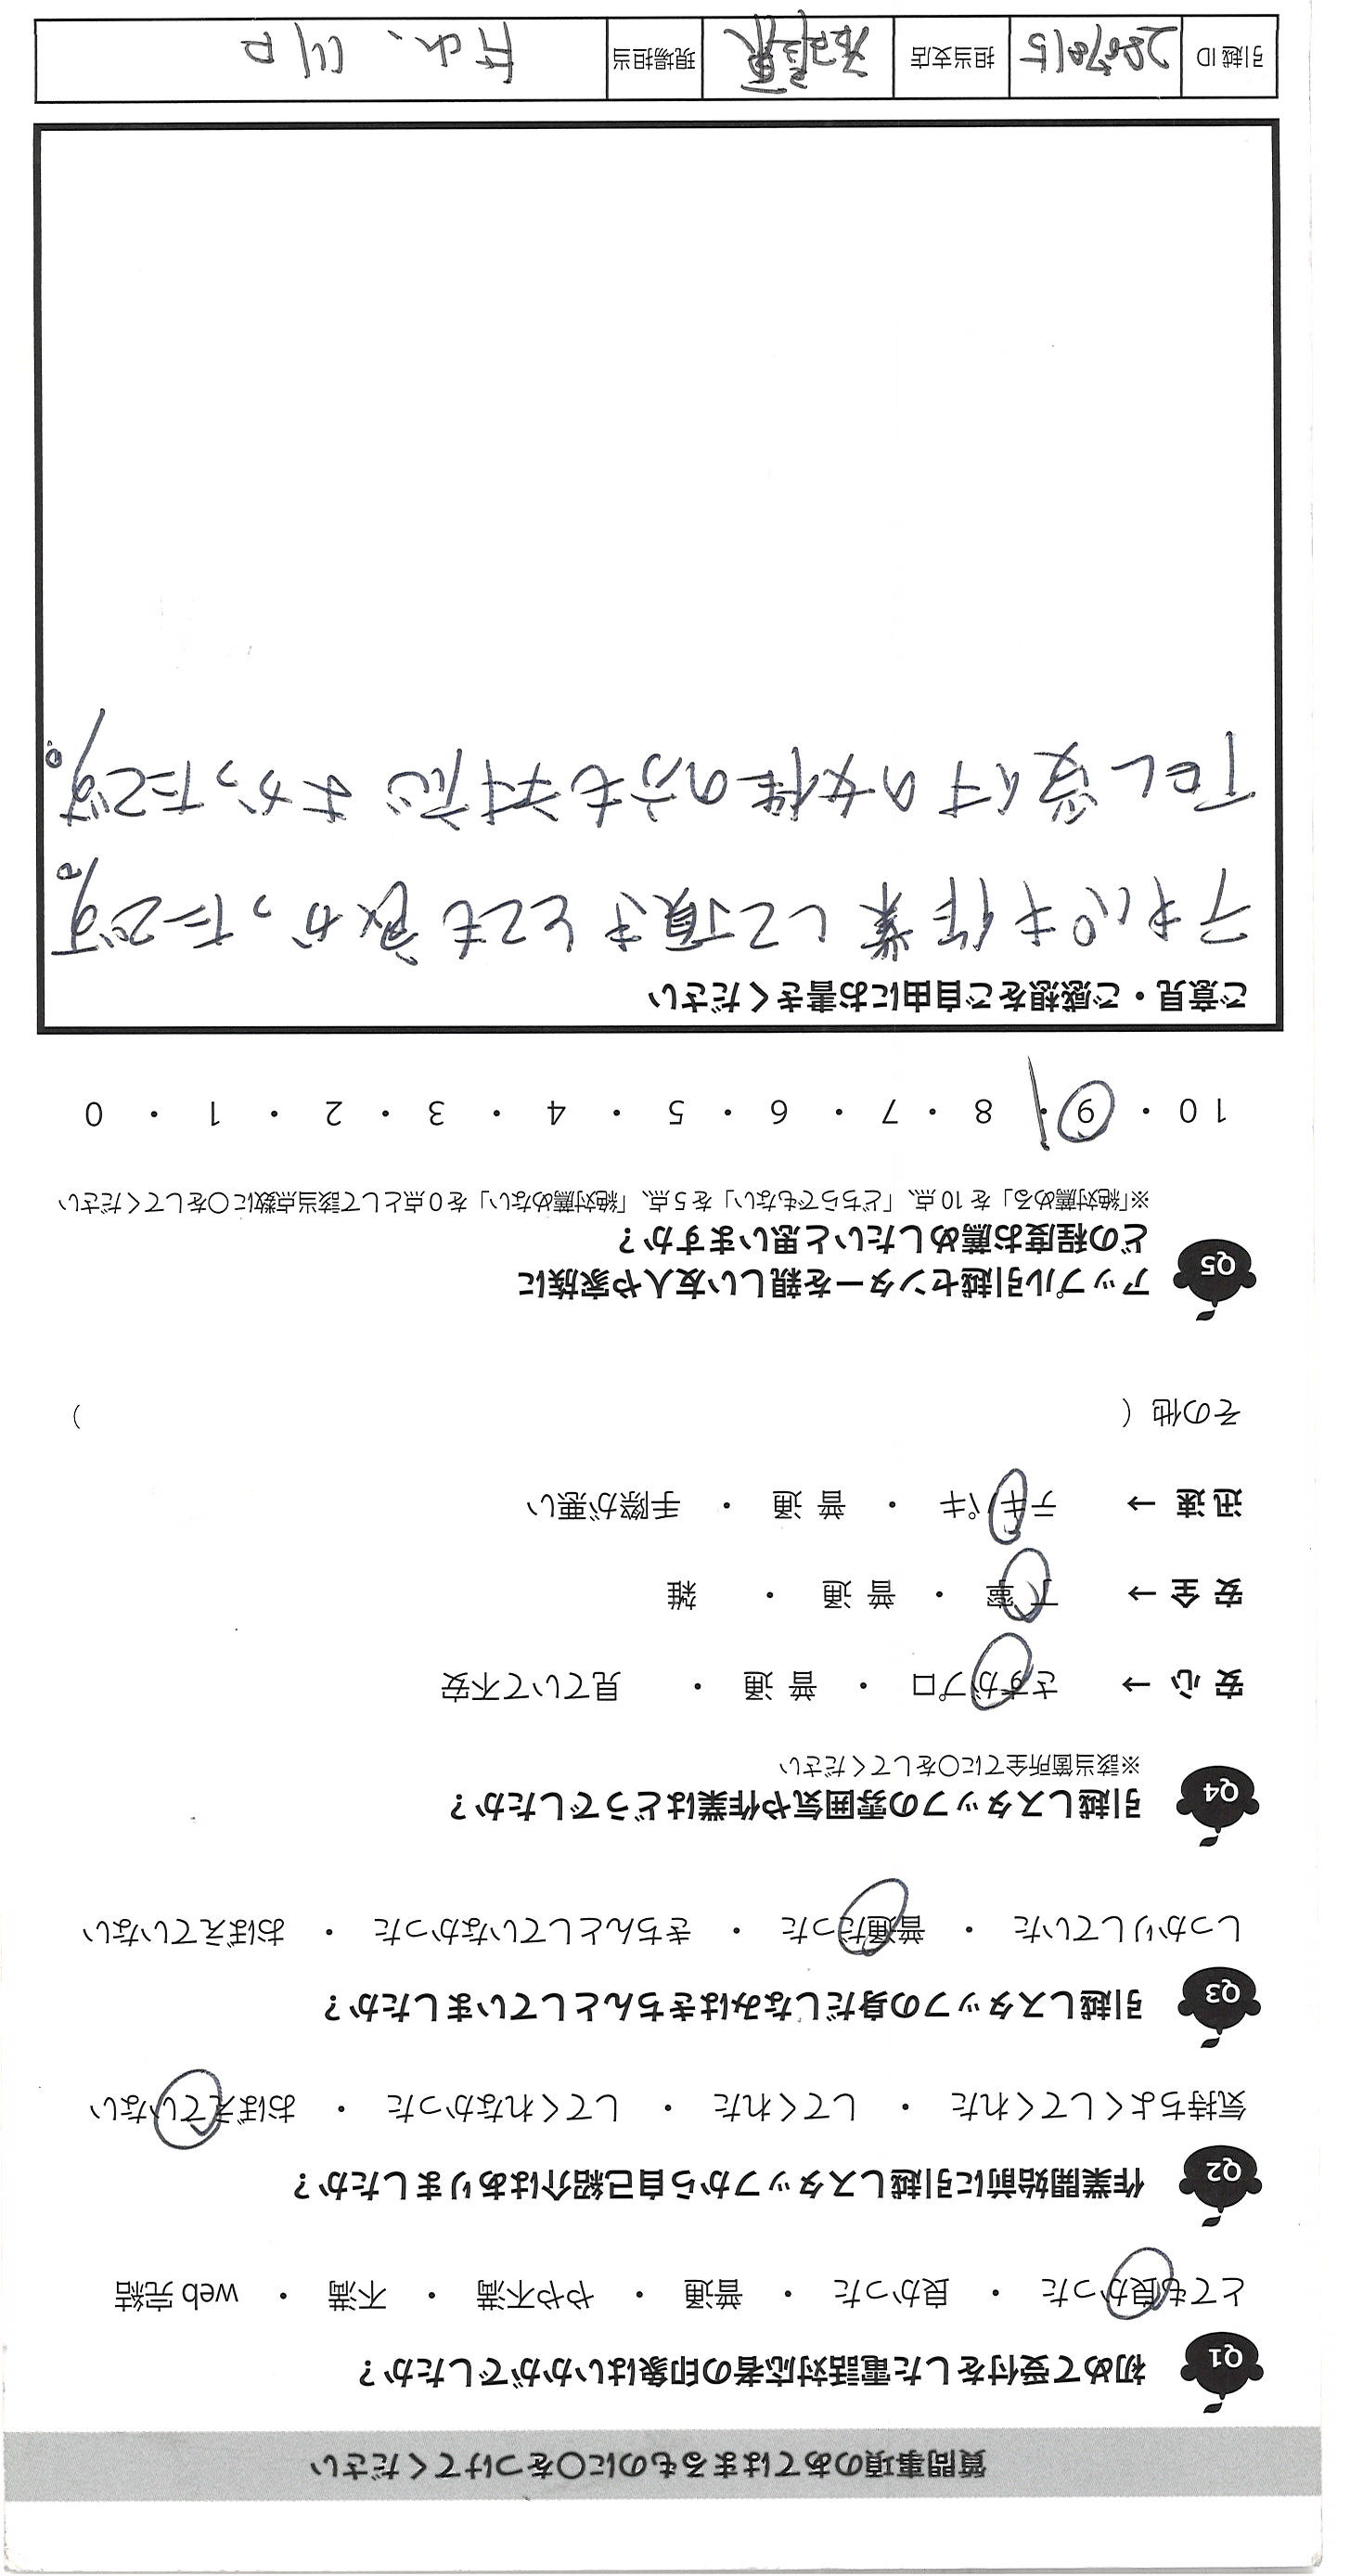 質問事項のあてはまるものに〇をつけてください
Q1 初めて受付をした電話対応者の印象はいかがでしたか？
とても良かった ・ 良かった ・ 普通 ・ やや不満 ・ 不満 ・ web 完結
Q2 作業開始前に引越しスタッフから自己紹介はありましたか？
気持ちよくしてくれた ・ してくれた ・ してくれなかった ・ おぼえていない
Q3 引越しスタッフの身だしなみはきちんとしていましたか？
しっかりしていた ・ 普通だった ・ きちんとしていなかった ・ おぼえていない
Q4 引越しスタッフの雰囲気や作業はどうでしたか？
※該当箇所全てに〇をしてください
安 心 → さすがプロ ・ 普 通 ・ 見ていて不安
安 全 → 丁 寧 ・ 普 通 ・ 雑
迅 速 → テキパキ ・ 普 通 ・ 手際が悪い
その他（ ）
Q5 アップル引越センターを親しい友人や家族に
どの程度お薦めしたいと思いますか？
※「絶対薦める」を 10 点、「どちらでもない」を 5 点、「絶対薦めない」を 0 点として該当点数に〇をしてください
10 ・ 9 ・ 8 ・ 7 ・ 6 ・ 5 ・ 4 ・ 3 ・ 2 ・ 1 ・ 0
ご意見・ご感想をご自由にお書きください
テキパキ作業して頂きとても良かったです。
TEL受付の女性の方も対応よかったです。
引越 ID 担当支店 現場担当 川口